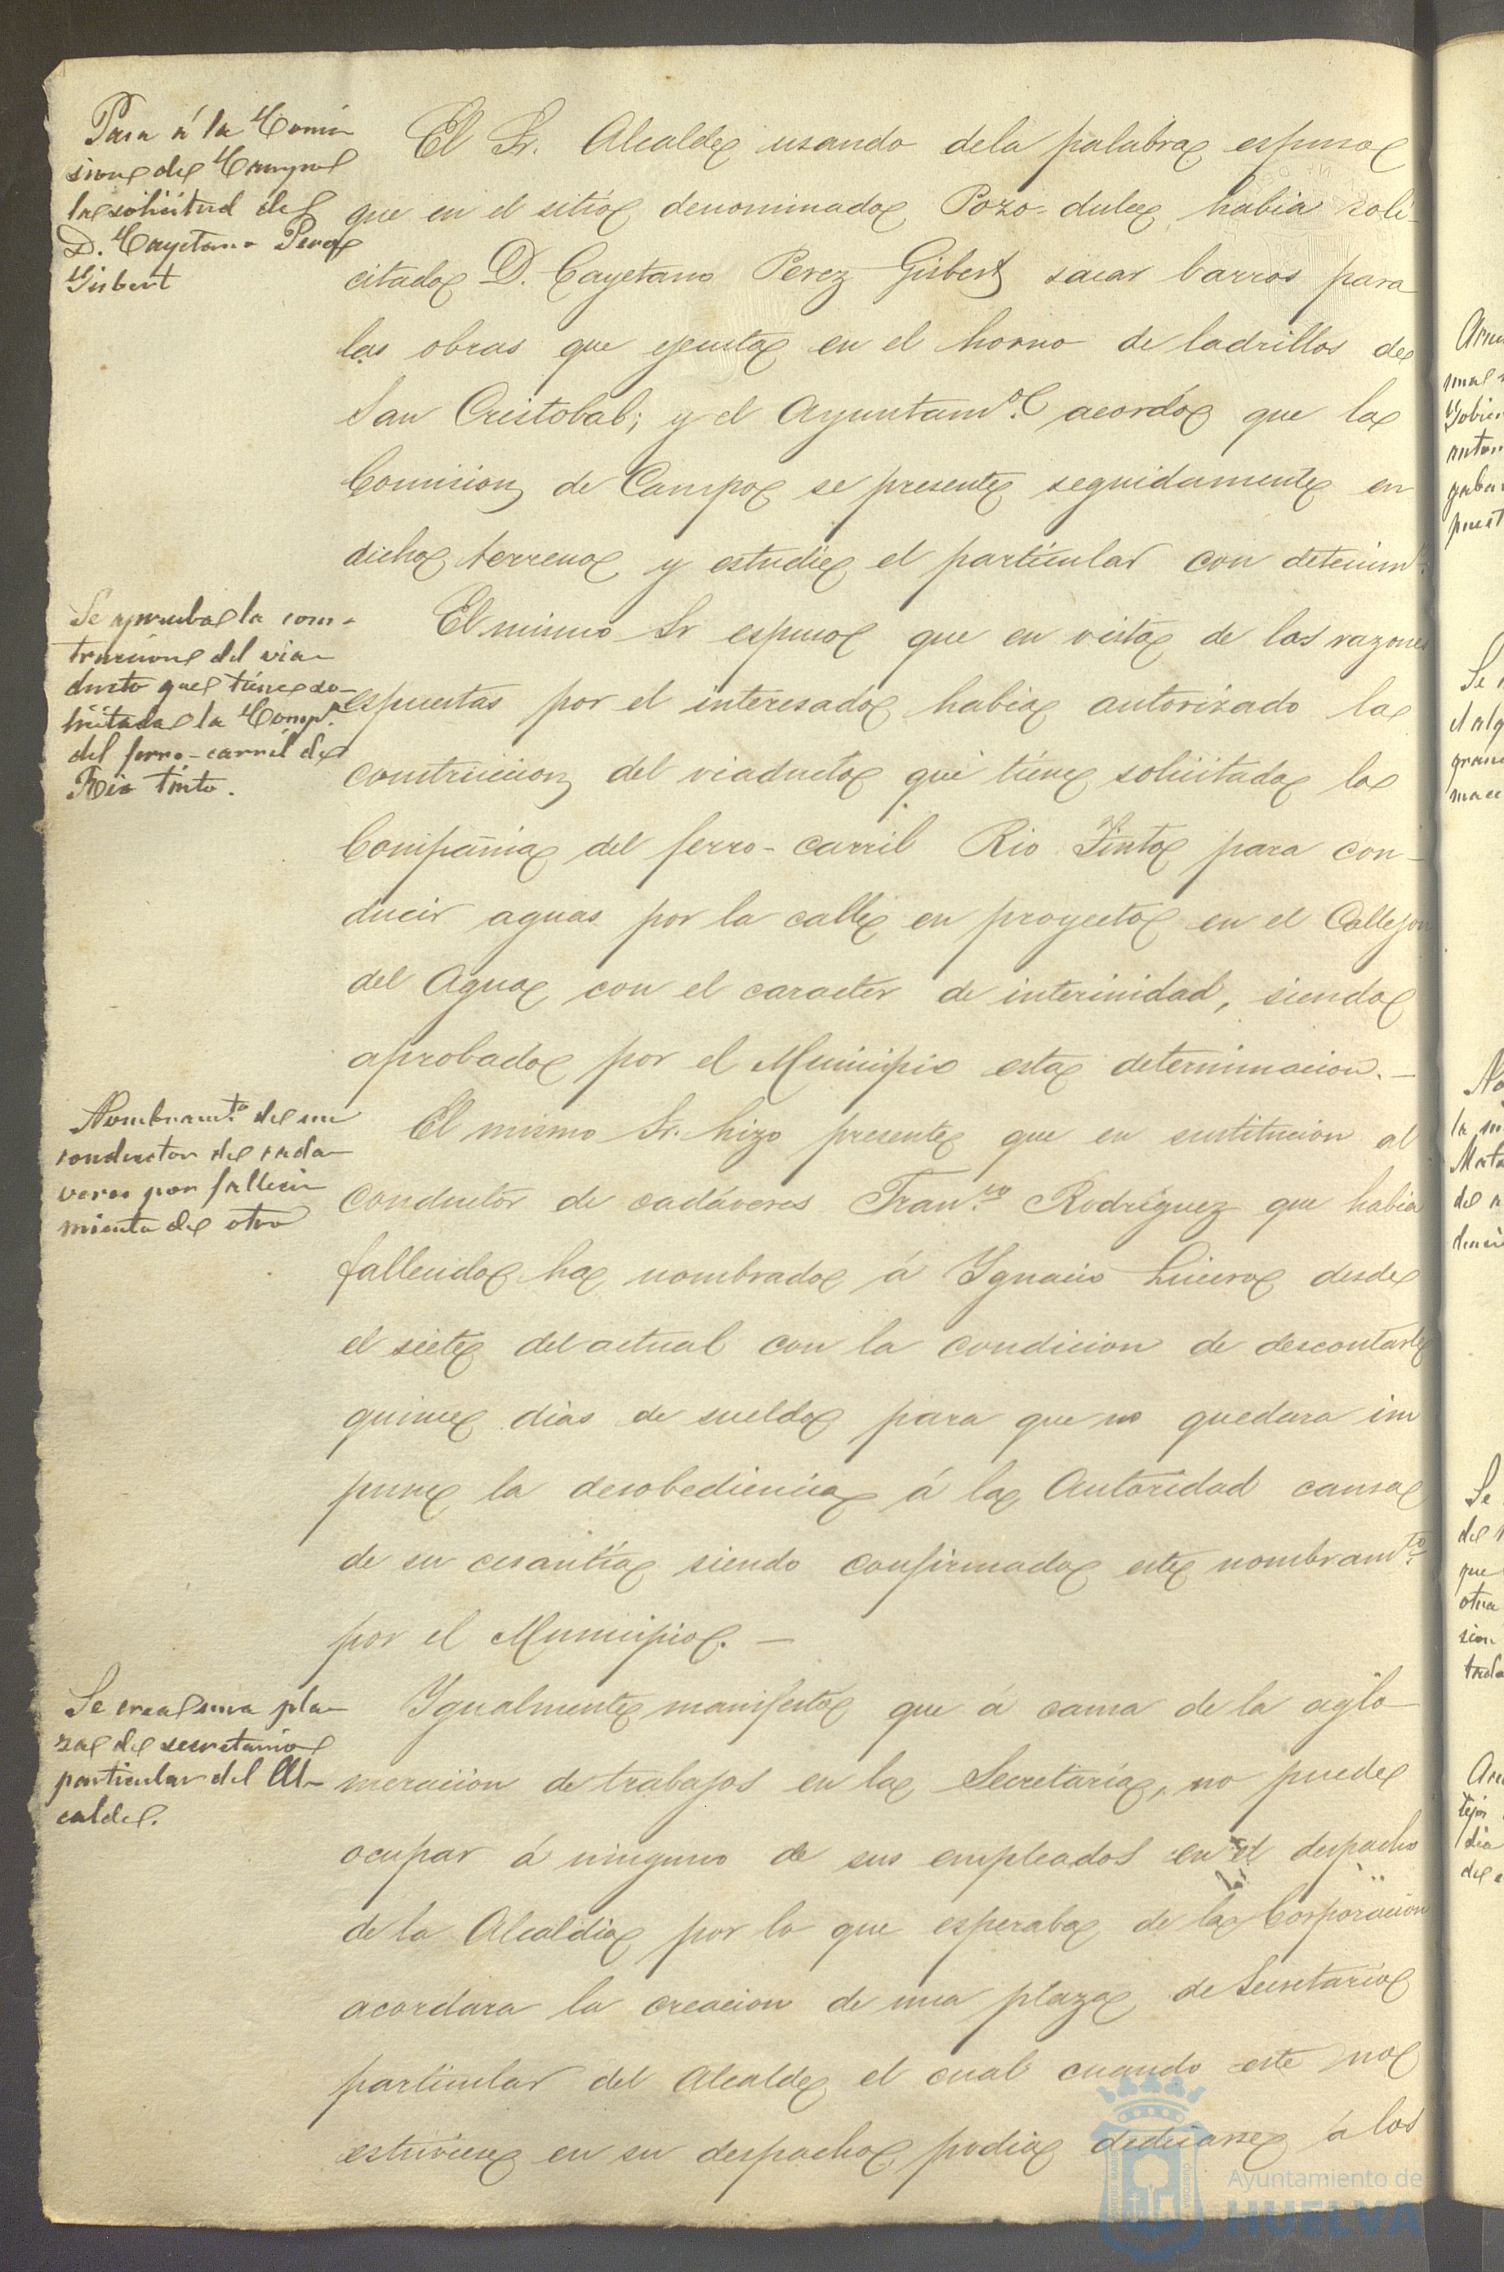 Pasa á la Comi-
sion de Campo
la solicitud de
D. Cayetano Perez
Gisbert
El Sr. Alcalde usando dela palabra espuso
que en el sitio denominado Pozo-dulce habia soli-
citado D. Cayetano Perez Gisbert sacar barros para
las obras que ejecuta en el horno de ladrillos de
San Cristobal; y el Ayuntamto. acordó que la
Comision de Campo se presente seguidamente en
dicho terreno y estudie el particular con detenimto.
Se aprueba la cons-
truccion del via-
ducto que tiene so-
licitada la Compª.
del ferro-carril de
Rio tinto.
El mismo Sr espuso que en vista de las razones
espuestas por el interesado habia autorizado la
construccion del viaducto que tiene solicitado la
Compañia del ferro-carril Rio Tinto para con-
ducir aguas por la calle en proyecto en el Callejon
del Agua con el caracter de interinidad, siendo
aprobado por el Municipio esta determinacion.-
Nombramto. de un
conductor de cada-
veres por falleci-
miento de otro
El mismo Sr. hizo presente que en sustitucion al
conductor de cadáveres Franco. Rodriguez que habia
fallecido ha nombrado á Ygnacio Lucero desde
el siete del actual con la condicion de descontarle
quince dias de sueldo para que no quedara im
pune la desobediencia á la Autoridad causa
de su cesantía siendo confirmado este nombramto.
por el Municipio.-
Se crea una pla-
za de secretario
particular del Al-
calde.
Ygualmente manifestó que á causa de la aglo-
meracion de trabajos en la Secretaría, no puede
ocupar á ninguno de sus empleados en el despacho
de la Alcaldia por lo que esperaba de la Corporacion
acordara la creacion de una plaza de Secretario
particular del Alcalde el cual cuando este no
estuviese en su despacho podia dedicarse á los
Ayuntamiento de
HUELVA